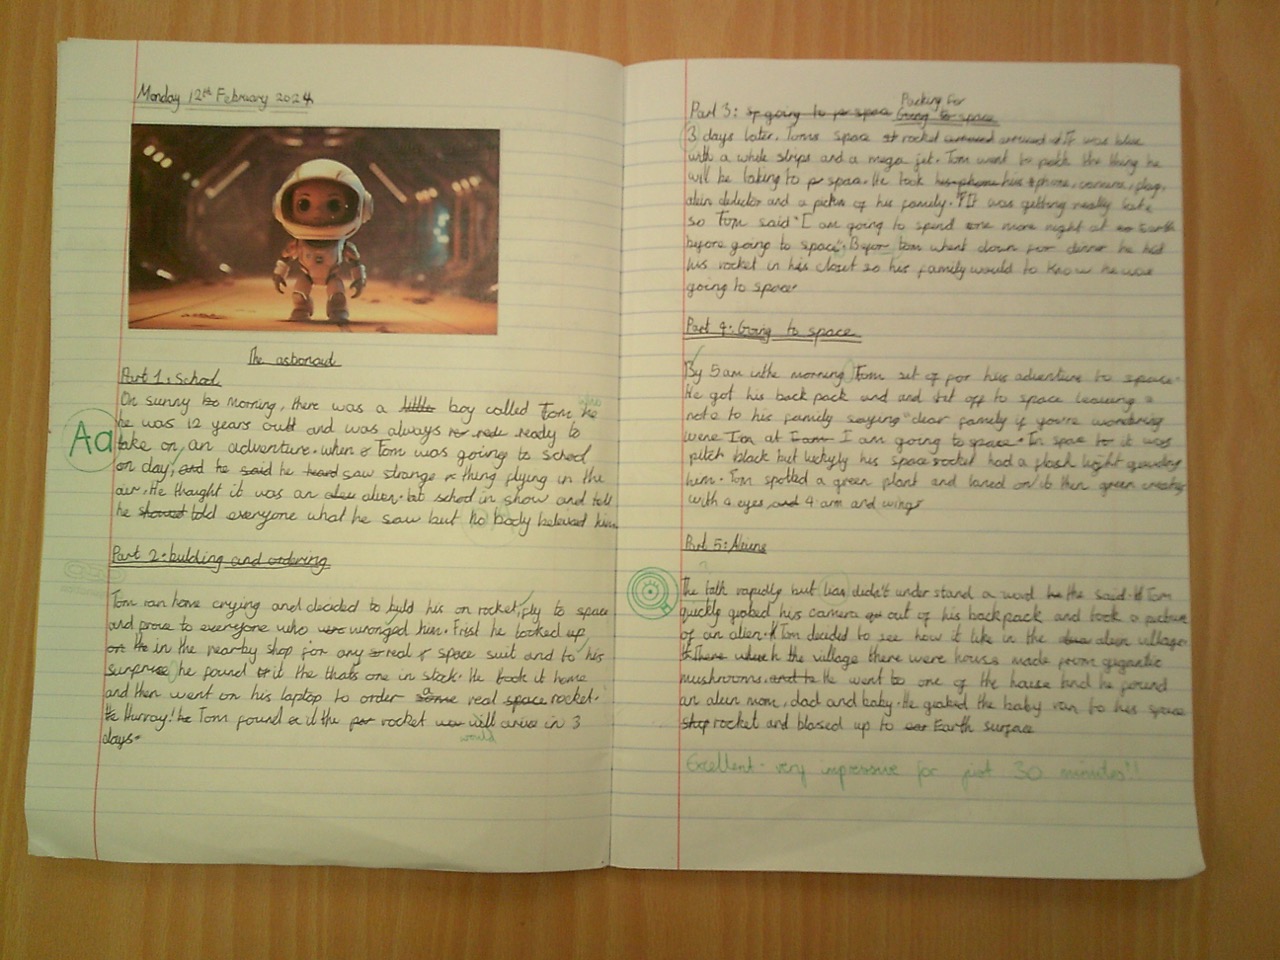 Monday 12th February 2024
The astronaut
Part 1: School
On sunny morning, there was a little boy called Tom who he
he was 12 years ould and was always ready to
Aa
take on an adventure. when Tom was going to school
on day, and he said he heard saw strange thing flying in the
air. He thaught it was an alien. but school in show and tell
he showed told everyone what he saw but no body beleived him
Part 2: bulding and ordering
Tom ran home crying and decided to build his on rocket, fly to space
and prove to everyone who wronged him. Frist he looked up
in the nearby shop for any real space suit and to his
surprise he found it the thats one in stock. He took it home
and then went on his laptop to order some real space rocket.
Hurray! Tom found the rocket will arive in 3
would
days.
Packing For
Part 3: going to space Going to space
3 days later, Toms space rocket arrived. It was blue
with a white strips and a mega jet. Tom went to pack the thing he
will be taking to space. He took his phone his phone, camera, flag,
alein detector and a pictur of his family. It was getting really late
so Tom said "I am going to spend one more night at Earth
before going to space". Befor tom whent down for dinner he hid
his rocket in his closet so his family would to know he was
going to space.
Part 4: Going to space
By 5 am in the morning Tom set of for his adventure to space.
He got his back pack and and set off to space leaving a
note to his family saying "dear family if you're wondering
were I'm at I am I am going to space. In space it was
pitch black but luckyly his space rocket had a flash light guiding
him. Tom spotted a green plant and laned on it then green creatures
with 4 eyes, and 4 arm and wings
Part 5: Aliens
The talk rapidly but didn't understand a word he the said. Tom
quickly grabed his camera out of his backpack and took a picture
of an alien. Tom decided to see how it like in the alein village.
There the village there were house made from gigantic
mushrooms. and he He went to one of the house and he found
an alien mom, dad and baby. He grabed the baby ran to his space
ship rocket and blased up to Earth surface
Excellent - very impressive for just 30 minutes!!